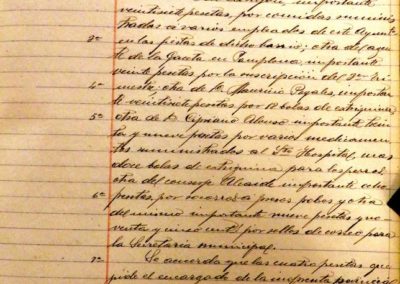 importante
veintisiete pesetas, por comidas suminis
tradas a varios empleados de este Ayunto
3º en las fiestas de dicho barrio; otra del agen
te de la Gaceta en Pamplona, importante
veinte pesetas por la suscripción del 3er tri
4º mestre; otra de D. Mauricio Poyales, importan
te veintisiete pesetas por 12 bolas de estrignina
5º otra de D. Cipriano Alonso importante trein
ta y nueve pesetas por varios medicamen
tos suministrados al Sto Hospital, unas
doce bolas de estrignina para los perros
otra del conserje Alcaide importante ocho
6º pesetas, por socorros a presos pobres y otra
del mismo importante nueve pesetas y no
venta y cinco cents por sellos de correo para
la Secretaría municipal.
7º Se acuerda que las cuatro pesetas que
pide el encargado de la imprenta provincial